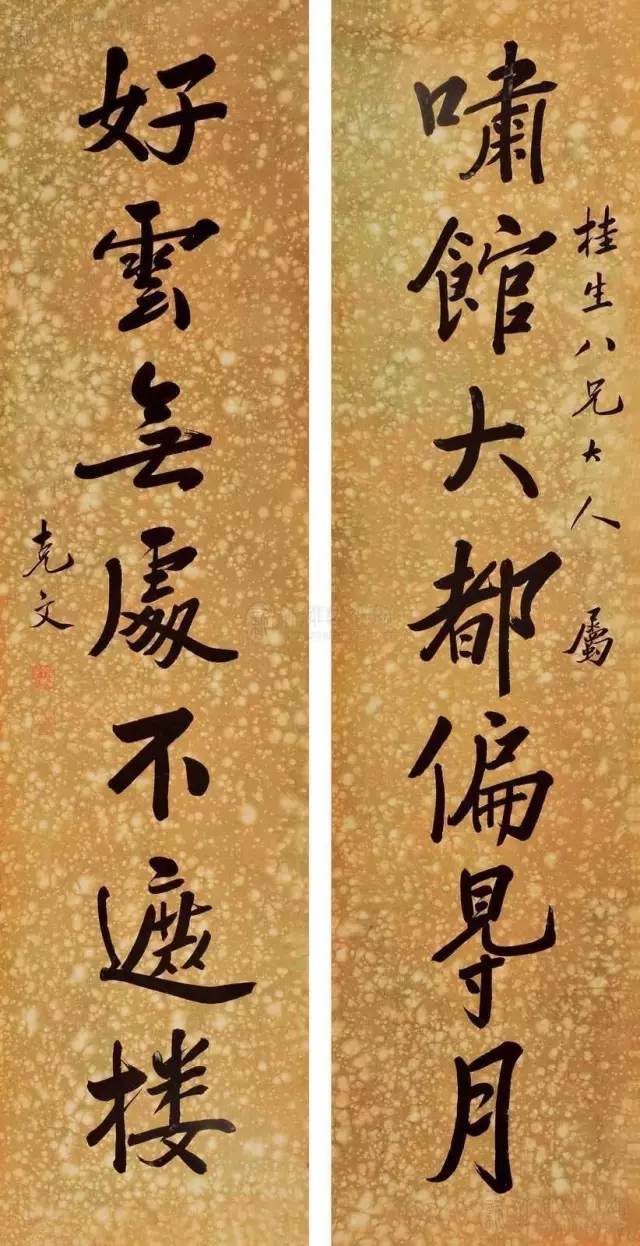 桂生八兄大人屬
嘯館大都偏㝵月
好雲無處不遮楼
克文